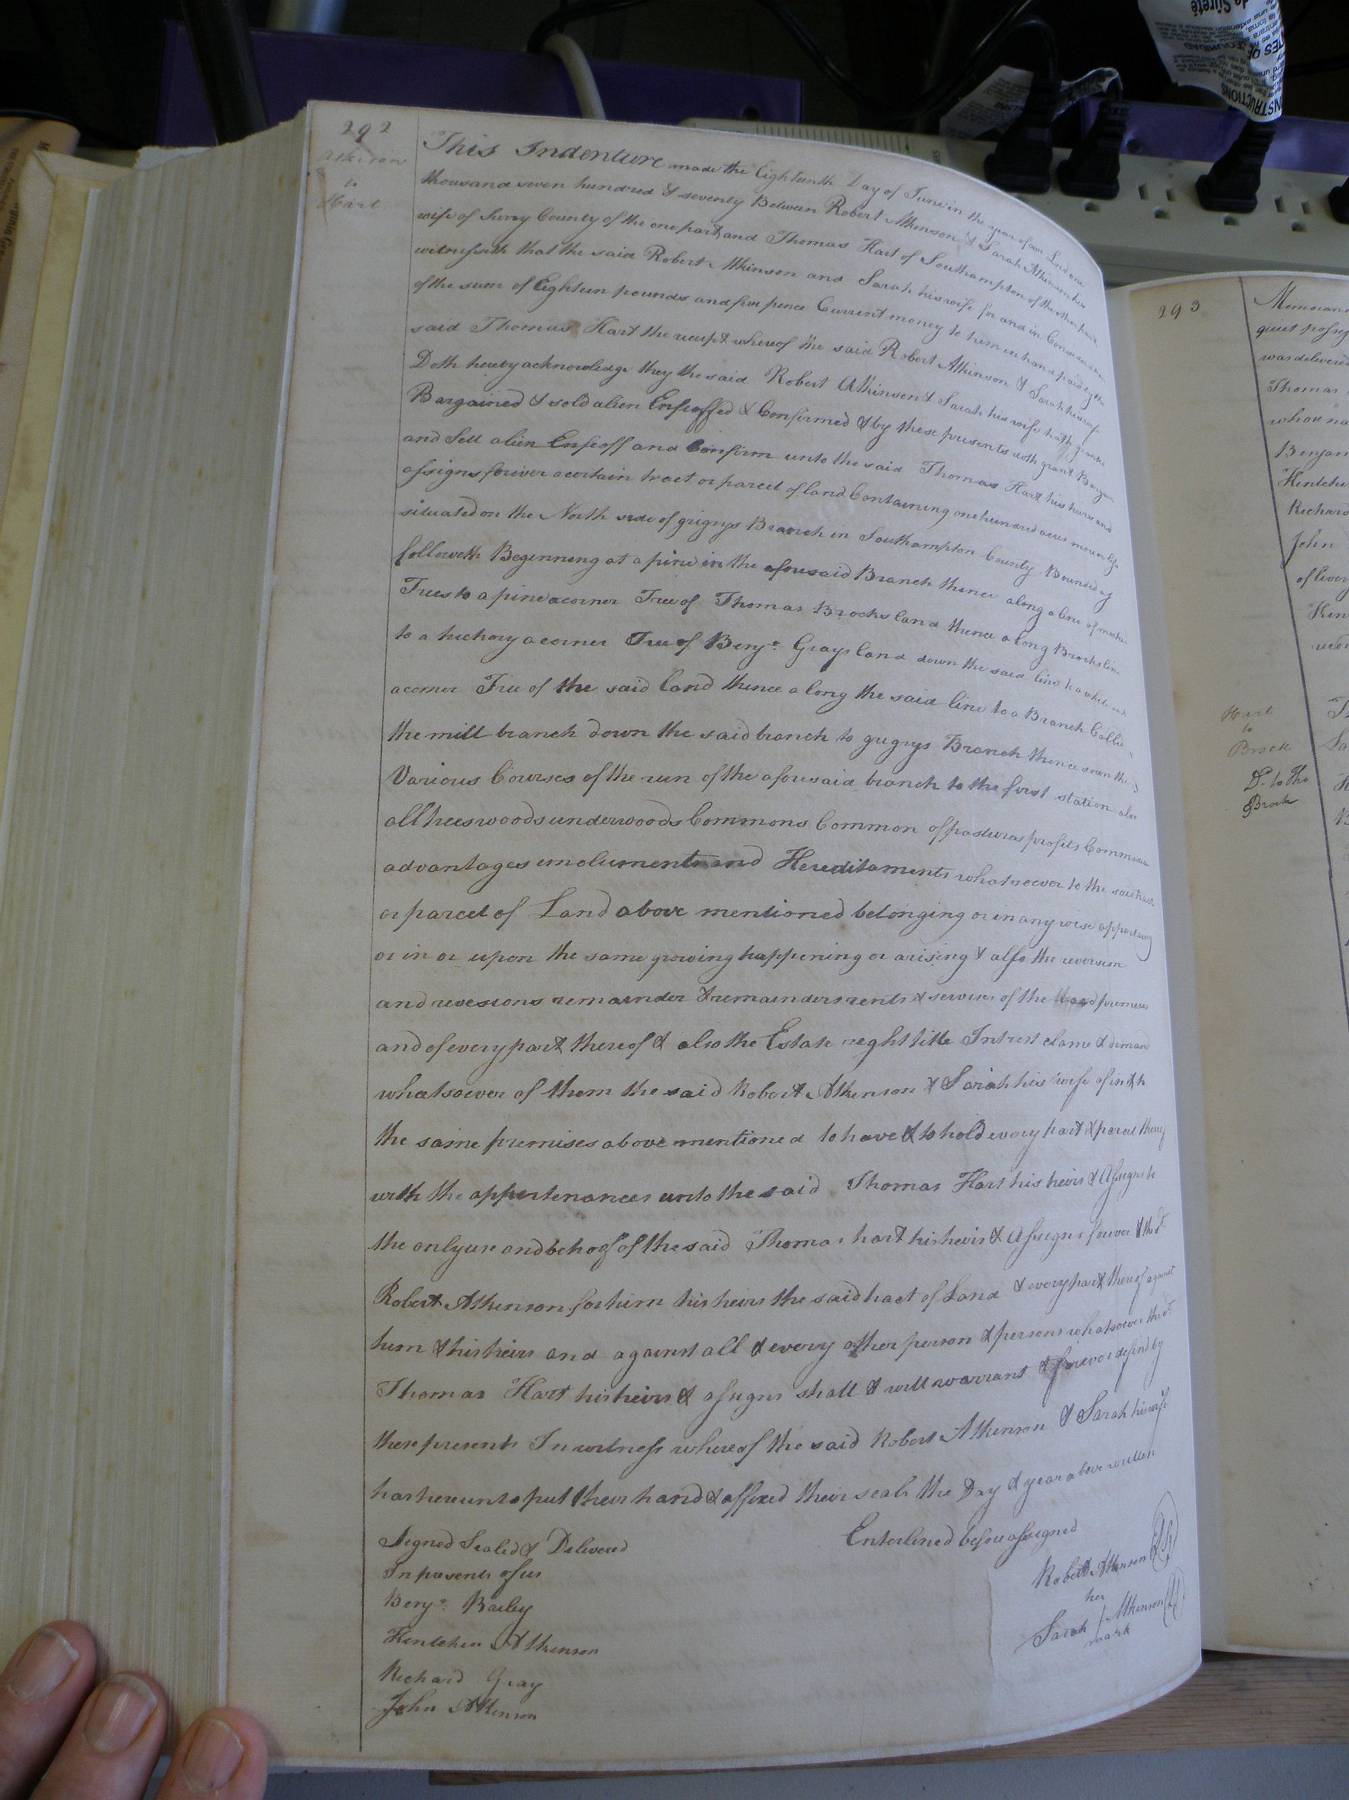 292
Atkinson
to
Hart
This Indenture made the Eighteenth Day of June in the year of our Lord one
thousand seven hundred & seventy Between Robert Atkinson & Sarah Atkinson his
wife of Surry County of the one part and Thomas Hart of Southampton of the other part
witnesseth that the said Robert Atkinson and Sarah his wife for and in Consideration
of the sum of Eighteen pounds and five pence Current money to him in hand paid by the
said Thomas Hart the receipt whereof the said Robert Atkinson & Sarah his wife
Doth hereby acknowledge they the said Robert Atkinson & Sarah his wife hath
Bargained & sold alien Enfeoffed & Confirmed & by these presents doth grant Bargain
and Sell alien Enfeoff and Confirm unto the said Thomas Hart his heirs and
assigns forever a certain tract or parcel of land Containing one hundred acres more or less
situated on the North side of grigrys Branch in Southampton County Bounded as
followeth Beginning at a pine in the aforesaid Branch thence along a line of
Trees to a pine a corner Tree of Thomas Brocks land thence along Brocks line
to a hickory a corner Tree of Benjn. Grays land down the said line to a white oak
a corner Tree of the said land thence along the said line to a Branch Called
the mill branch down the said branch to grigrys Branch thence down the
Various Courses of the run of the aforesaid branch to the first station also
all trees woods underwoods Commons Common of pasturas profits
advantages emoluments and Hereditaments whatsoever to the said tract
or parcel of Land above mentioned belonging or in any wise
or in or upon the same growing happening or arising & also the reversion
and revesions remainder & remainders rents & services of the premises
and of every part thereof & also the Estate reght title Intrest clame & demand
whatsoever of them the said Robert Atkinson & Sarah his wife of in & to
the same premises above mentioned to have & to hold every part & parcel thereof
with the appurtenances unto the said Thomas Hart his heirs & Assigns to
the only use and behoof of the said Thomas hart his heirs & Assigns forever & the sd.
Robert Atkinson for him his heirs the said tract of Land & every part thereof against
him & his heirs and against all & every other person & persons whatsoever the sd.
Thomas Hart his heirs & assigns shall & will warrant & forever defend by
these presents In witness whereof the said Robert Atkinson & Sarah his wife
has hereunto put their hand & affixed their seals the Day & year above written
Signed Sealed & Delivered
Enterlined before assigned
In presents of us
Robert Atkinson (LS)
Benjn. Bailey
her
Sarah / Atkinson (LS)
mark
Atkinson
Richard Gray
John Atkinson
293
quiet
was delivered
Thomas
Richard
John
Hart
to
Brock
Do. to Tho
Brock
INSTRUCTIONS
de Sûreté